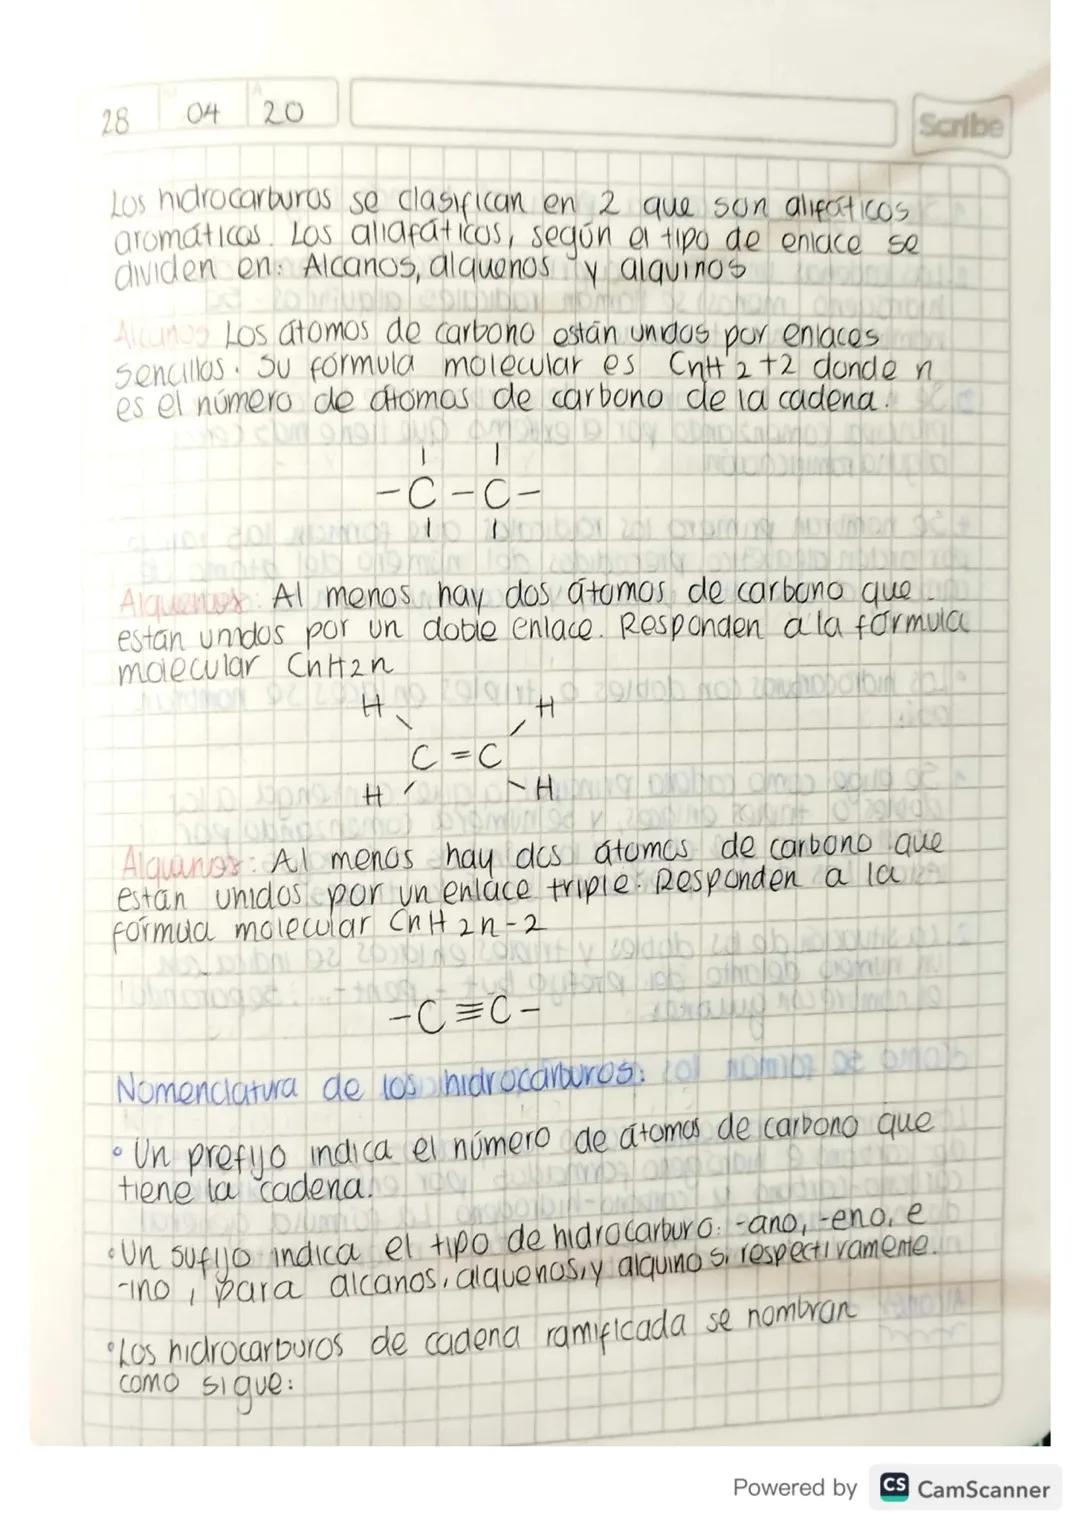 28 04 20
Scribe
Los hidrocarburos se clasifican en 2 que son alifáticos
aromáticos. Los aliafáticos, según el tipo de enlace se
dividen en: Alcanos, alquenos y alquinos
Alcanos Los átomos de carbono están unidos por enlaces
sencillos. Su fórmula molecular es CnH2+2 donde n
es el número de átomos de carbono de la cadena.
-C-C-
Alquenos: Al menos hay dos átomos de carbono que
están unidos por un doble enlace. Responden a la fórmula
molecular CnH2n
H H
C=C
H H
Alquinos: Al menos hay dos átomos de carbono que
están unidos por un enlace triple. Responden a la
fórmula molecular CnH2n-2
-C≡C-
Nomenclatura de los hidrocarburos:
• Un prefijo indica el número de átomos de carbono que
tiene la cadena.
• Un sufijo indica el tipo de hidrocarburo: -ano, -eno, e
-ino, para alcanos, alquenos, y alquinos, respectivamente.
• Los hidrocarburos de cadena ramificada se nombran
como sigue:
Powered by CS CamScanner